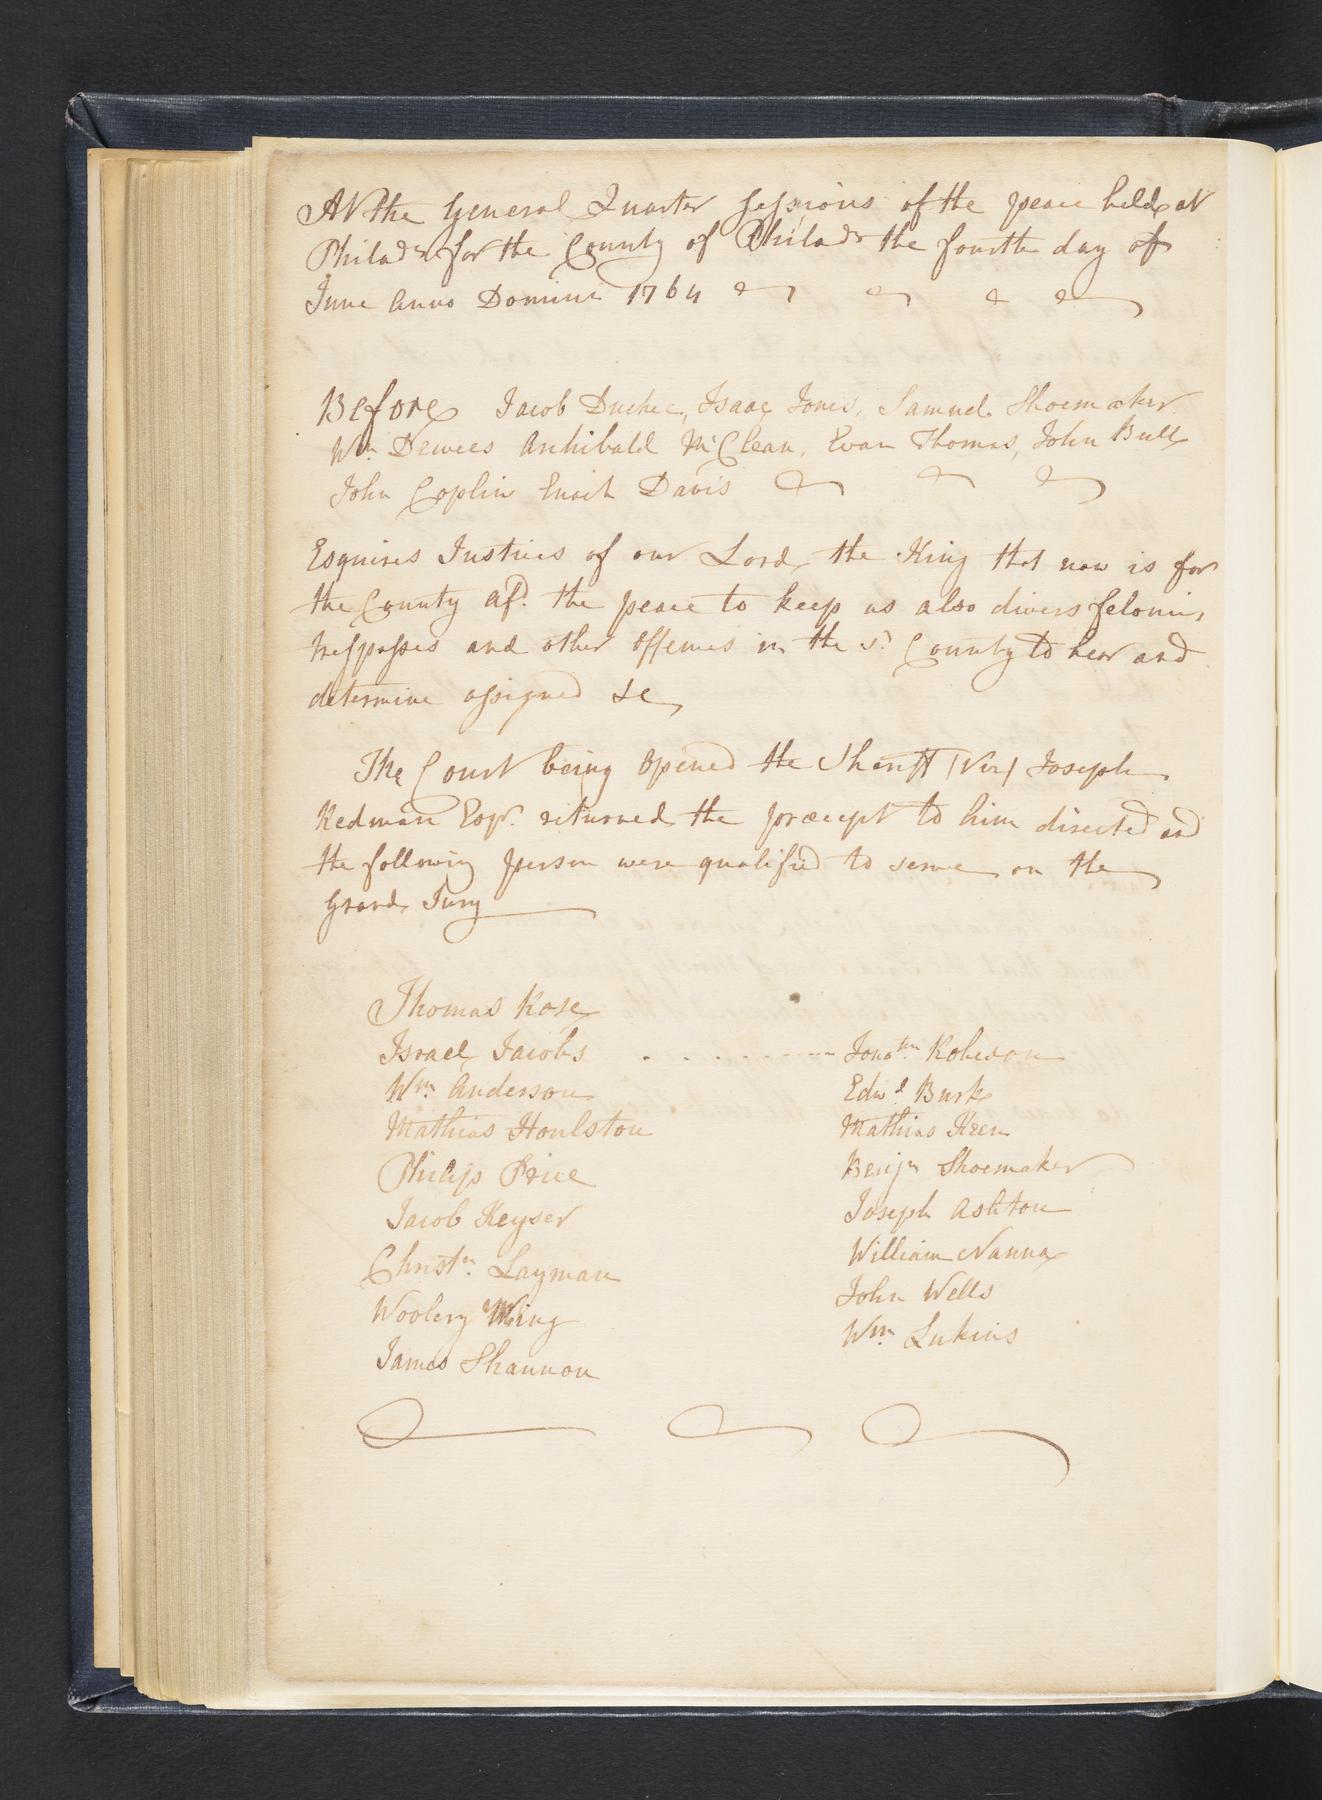 At the General Quarter Sessions of the peace held at
Philada. for the County of Philada. the fourth day of
June Anno Domini 1764
Before Jacob Duchee, Isaac Jones, Samuel Shoemaker
Wm. Dewees Archibald McClean, Evan Thomas, John Bull
John Coplin Enoch Davis
Esquires Justices of our Lord the King that now is for
the County afd. the peace to keep as also divers felonies,
trespasses and other offences in the sd. County to hear and
determine assigned &c
The Court being Opened the Sheriff (Viz) Joseph
Redman Esqr. returned the præcept to him directed and
the following person were qualified to serve on the
Grand Jury
Thomas Rose
Israel Jacobs - - - - - - - - - Jonatn. Roberson
Wm. Anderson
Edwd. Burk
Mathias Houlston
Mathias Keen
Philip Price
Benjn Shoemaker
Jacob Keyser
Joseph Ashton
Christn. Layman
William Nanna
Woolery Ming
John Wells
James Shannon
Wm. Lukins